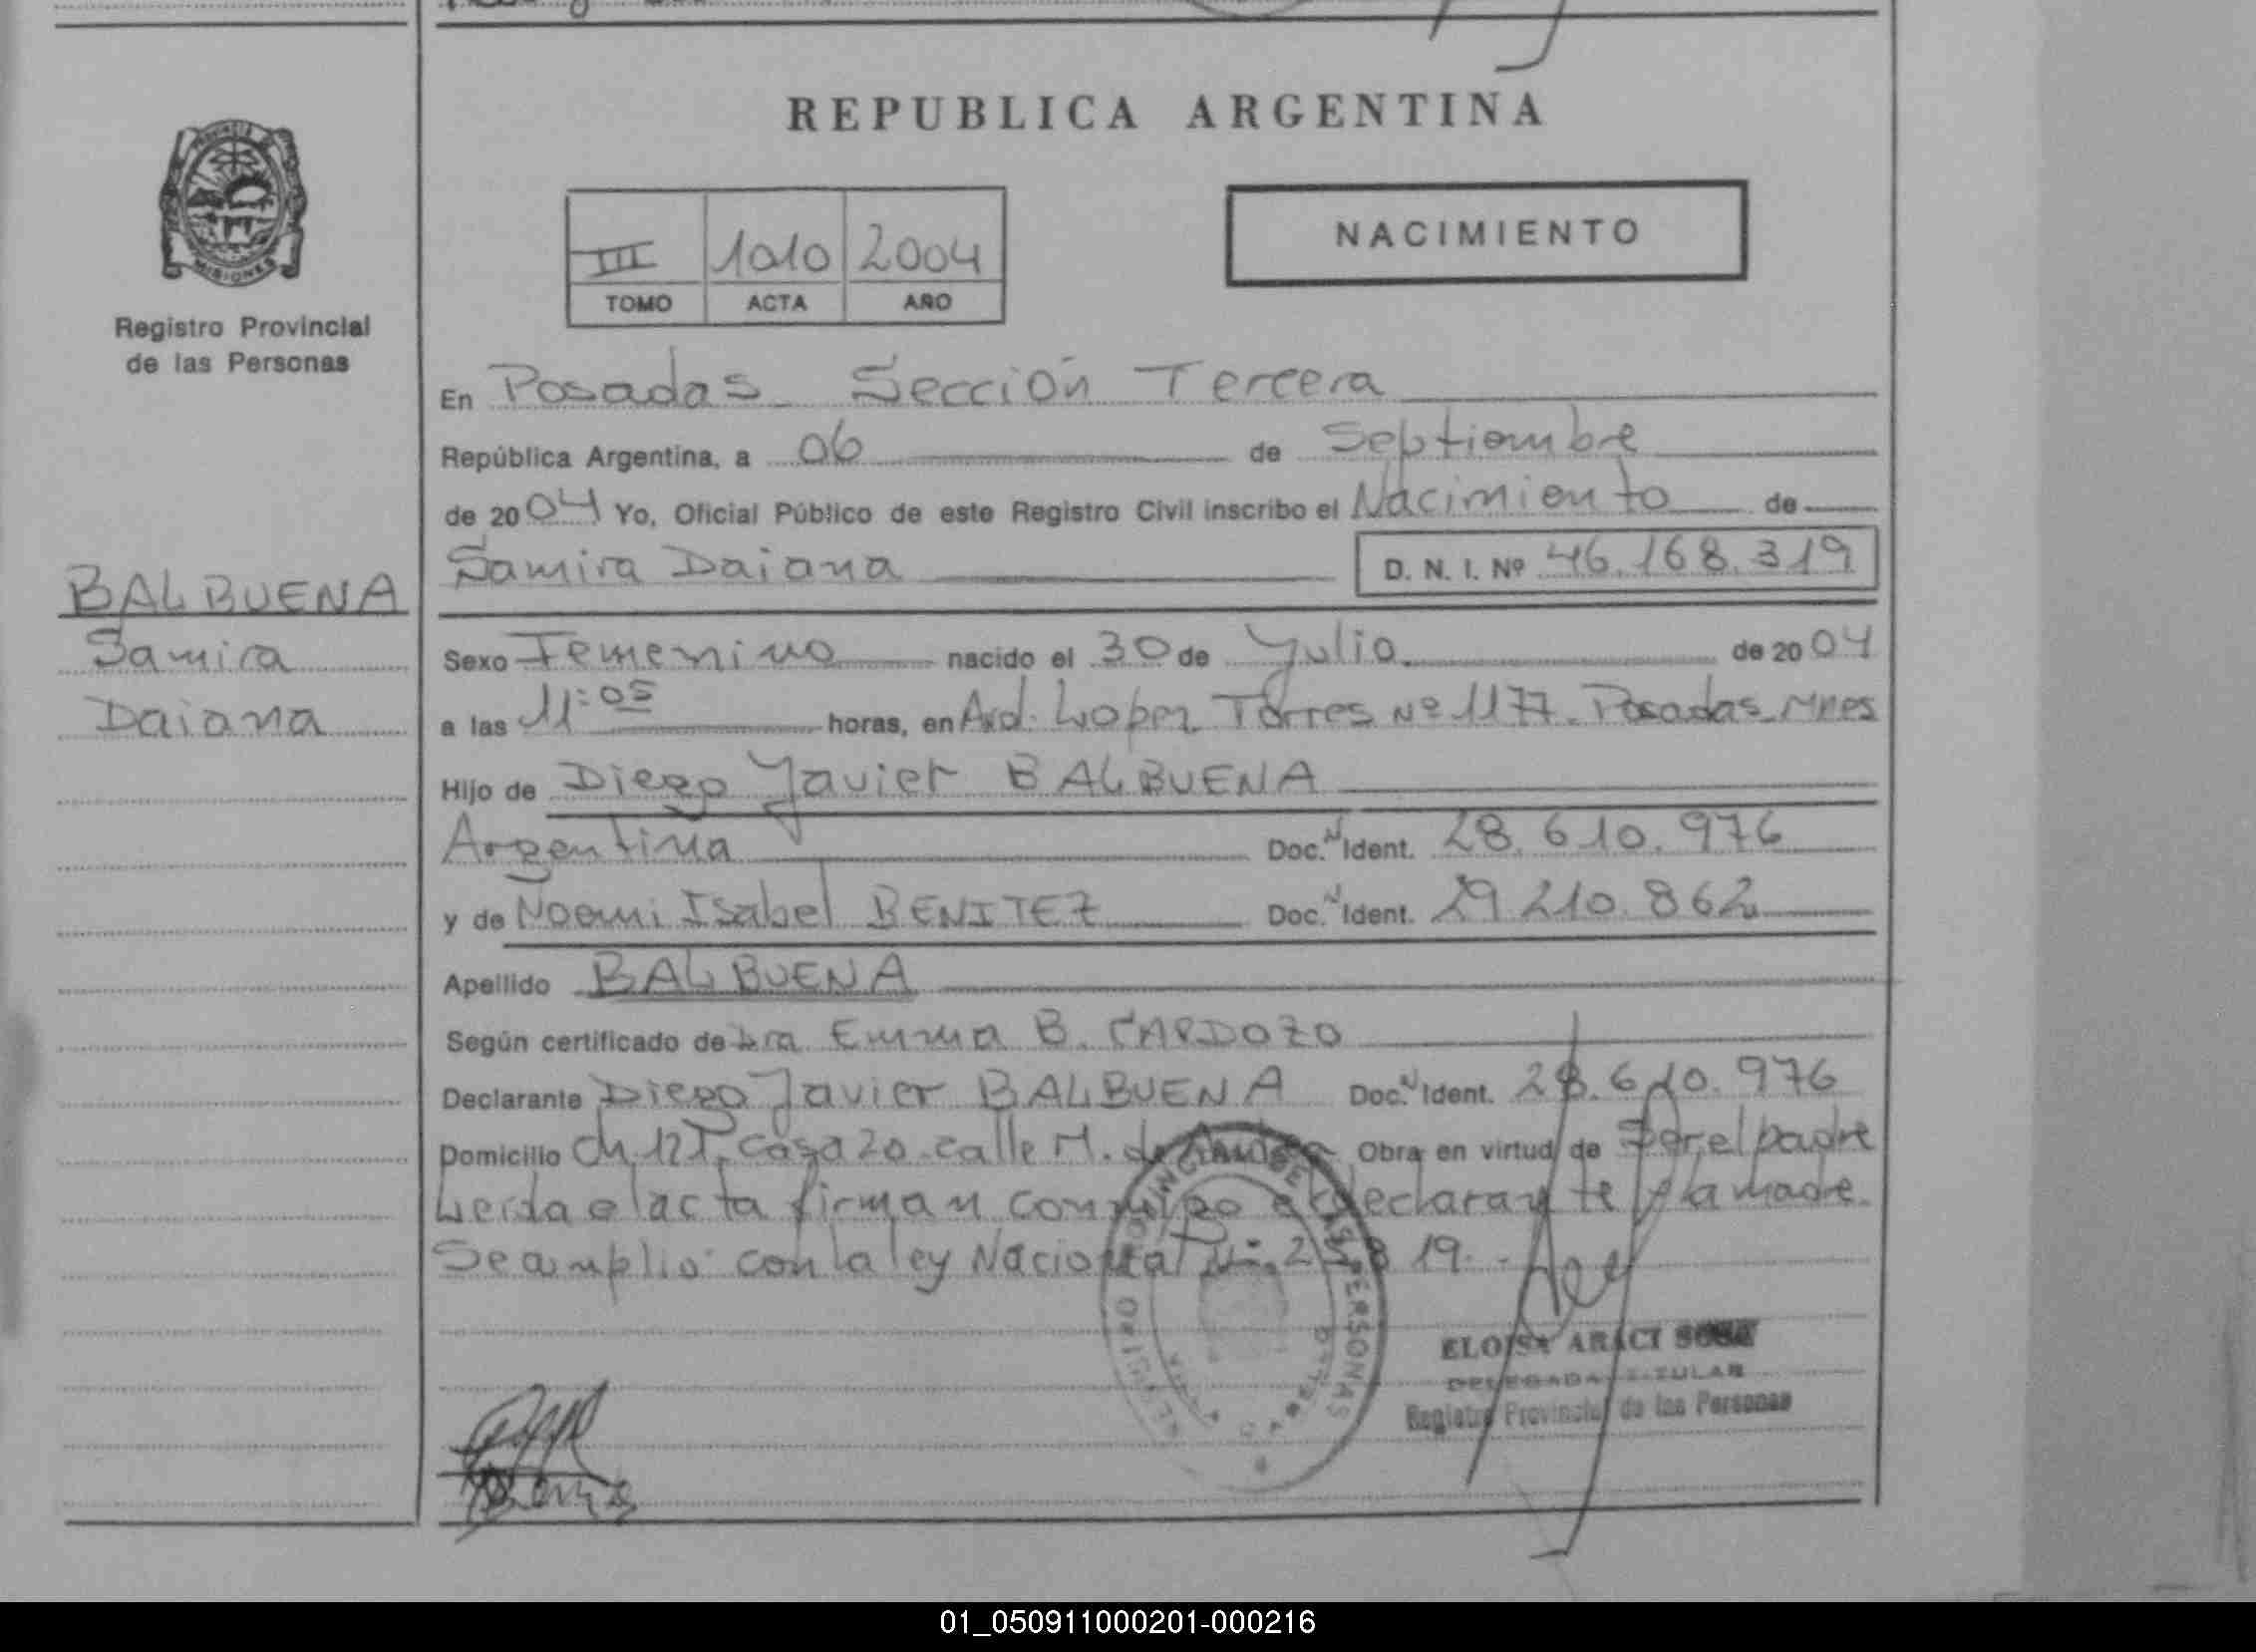 REPUBLICA ARGENTINA
PROVINCIA DE
MISIONES
Registro Provincial
de las Personas
III 1010 2004
TOMO ACTA AÑO
NACIMIENTO
En Posadas Sección Tercera
República Argentina, a 06 de Septiembre
de 2004 Yo, Oficial Público de este Registro Civil inscribo el Nacimiento de
Samira Daiana D. N. I. Nº 46.168.319
BALBUENA
Samira
Daiana
Sexo Femenino nacido el 30 de Julio de 2004
a las 11:05 horas, en Avd. Lopez Torres Nº 1177. Posadas Mnes
Hijo de Diego Javier BALBUENA
Argentina Doc. N Ident. 28.610.976
y de Noemi Isabel BENITEZ Doc. N Ident. 29.210.862
Apellido BALBUENA
Según certificado de Dra Emma B. CARDOZO
Declarante Diego Javier BALBUENA Doc. N Ident. 28.610.976
Domicilio Ch. 121 casa 20 calle M. de Obra en virtud de Ser el padre
Leida el acta firman conmigo el declarante y la madre.
Se amplio con la ley Nacional Nº 25.819.
REGISTRO PROVINCIAL DE LAS PERSONAS
ELOISA ARACI SOSA
DELEGADA TITULAR
Registro Provincial de las Personas
01_050911000201-000216